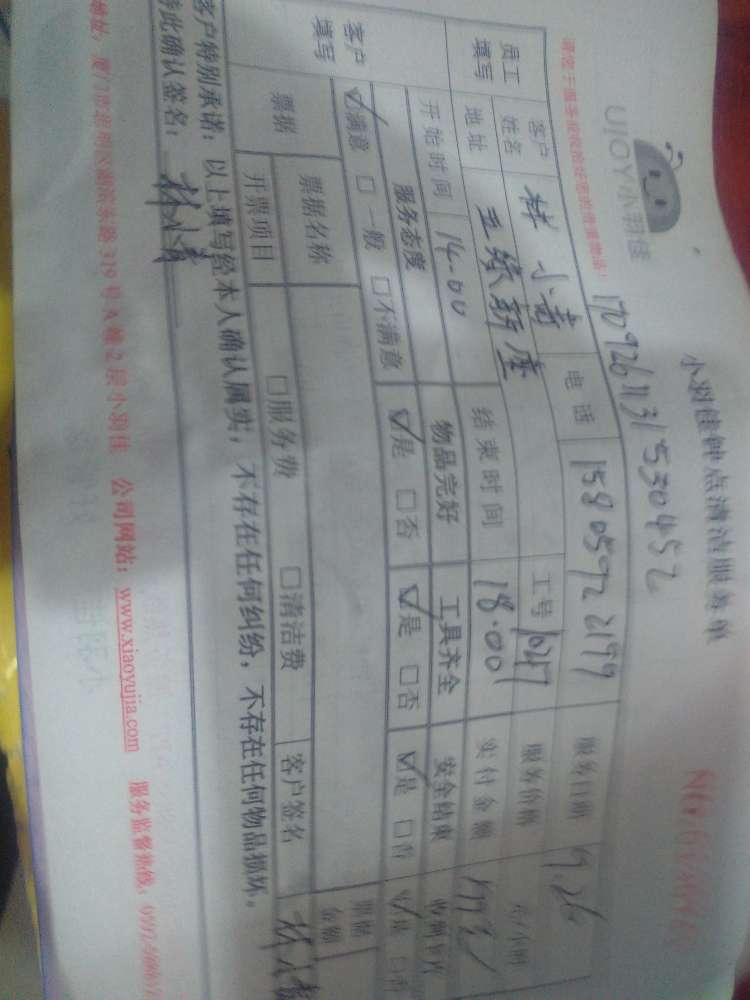 小羽佳钟点清洁服务单
UJOY小羽佳
1709261131530452
员工填写
客户姓名 林小青 电话 15805922199 服务日期 9.26
地址 工号 服务价格 元/小时
开始时间 14.00 结束时间 18.00 实付金额
客户填写
服务态度 物品完好 工具齐全 安全结束
☑满意 □一般 □不满意 ☑是 □否 ☑是 □否 ☑是 □否 ☑是 □否
票据 票据名称 票据金额
开票项目 □服务费 □清洁费 客户签名
客户特别承诺：以上填写经本人确认属实，不存在任何纠纷，不存在任何物品损坏。
特此确认签名： 林小青
地址：厦门市思明区湖滨东路319号A幢2层小羽佳 公司网站：www.xiaoyujia.com 服务监督热线：